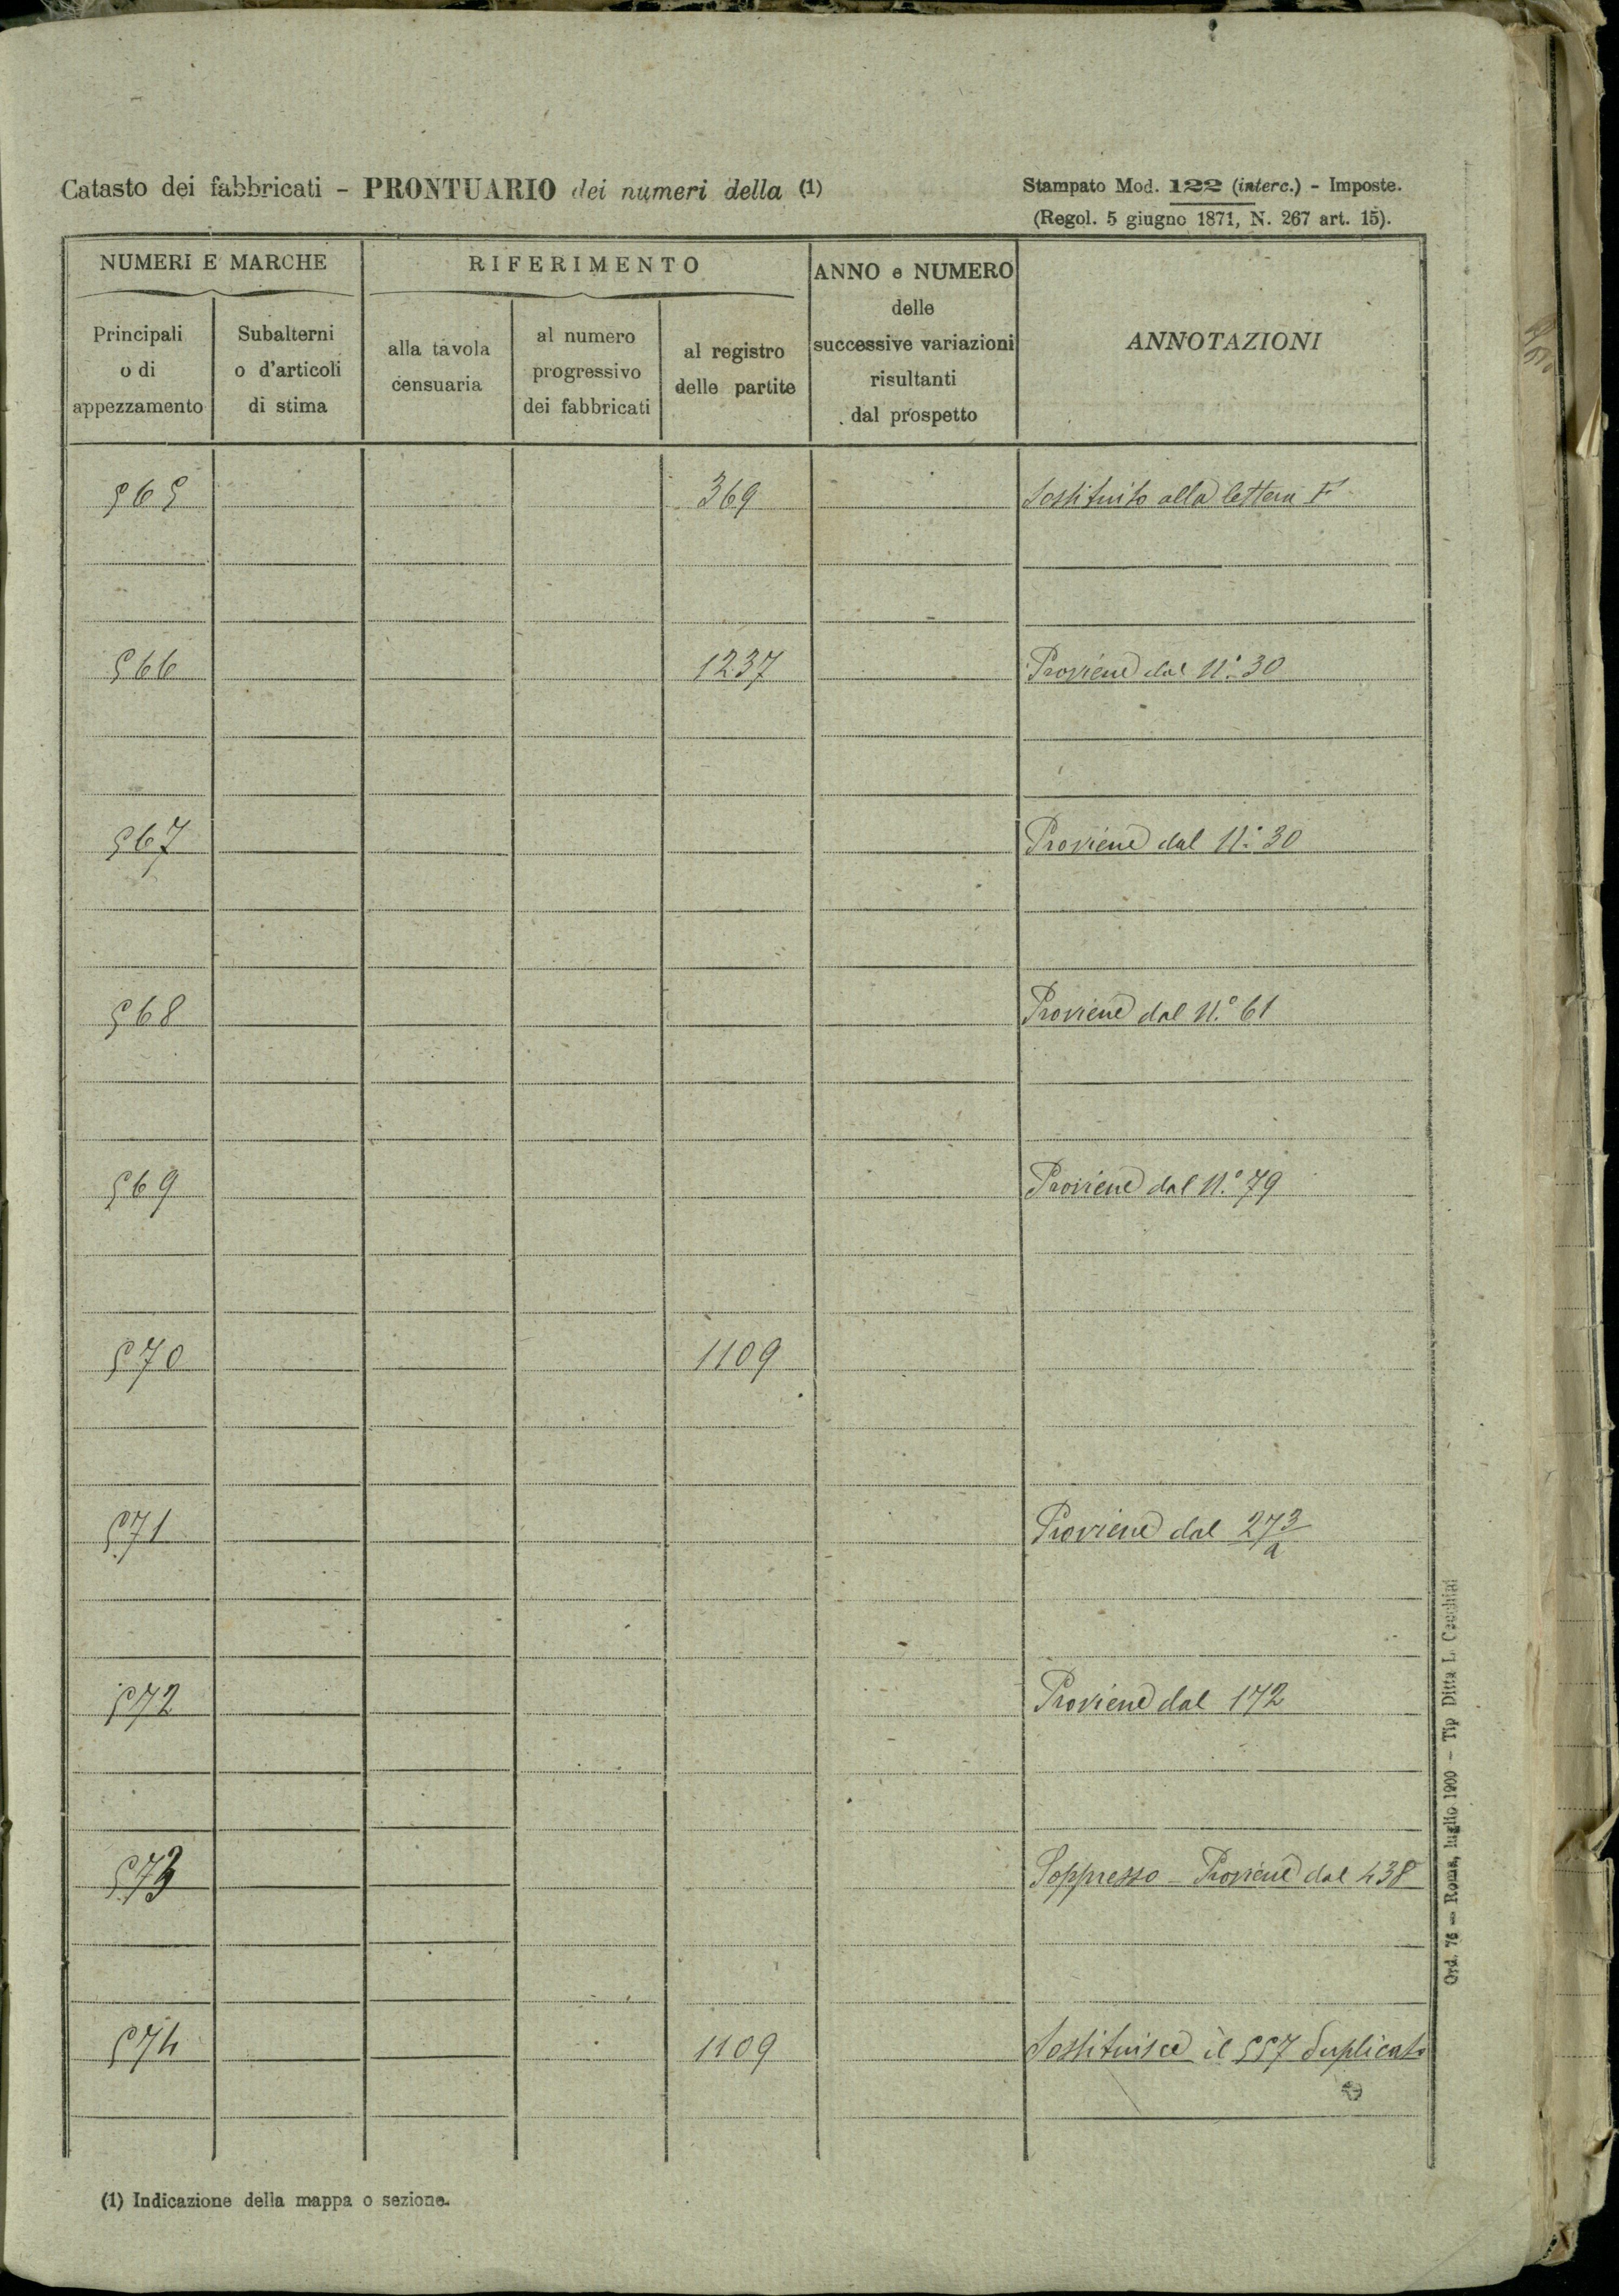 Catasto dei fabbricati - PRONTUARIO dei numeri della (1)
Stampato Mod. 122 (interc.) - Imposte.
(Regol. 5 giugno 1871, N. 267 art. 15).
NUMERI E MARCHE
RIFERIMENTO
ANNO e NUMERO
delle
successive variazioni
risultanti
dal prospetto
ANNOTAZIONI
Principali
o di
appezzamento
Subalterni
o d'articoli
di stima
alla tavola
censuaria
al numero
progressivo
dei fabbricati
al registro
delle partite
565 369 Sostituito alla lettera F
566 1237 Proviene dal N.° 30
567 Proviene dal N.° 30
568 Proviene dal N.° 61
569 Proviene dal N.° 79
570 1109
571 Proviene dal 273/a
572 Proviene dal 172
573 Soppresso - Proviene dal 438
574 1109 Sostituisce il 557 duplicato
(1) Indicazione della mappa o sezione.
Ord. 76 — Roma, luglio 1900 — Tip Ditta L. Cecchini